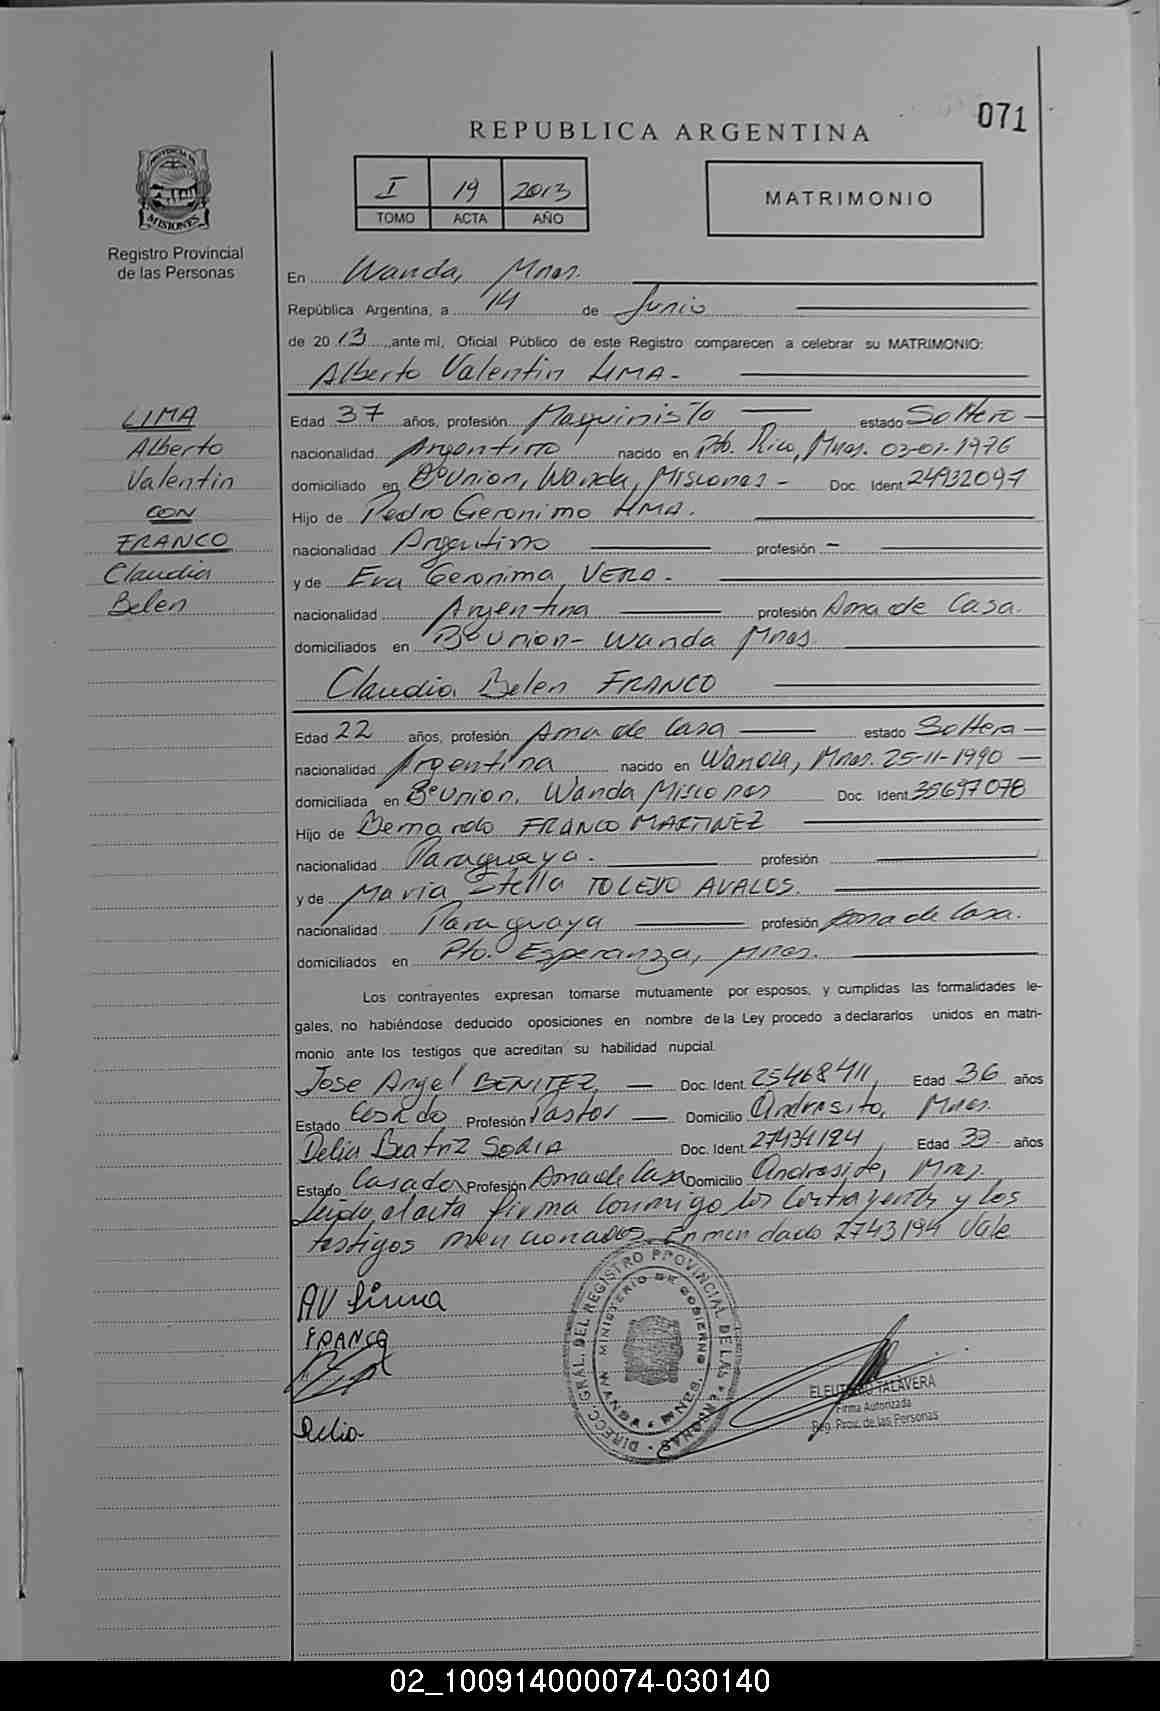 071
REPUBLICA ARGENTINA
I 19 2013
TOMO ACTA AÑO
MATRIMONIO
PROVINCIA DE
MISIONES
Registro Provincial
de las Personas
En Wanda, Mnes.
República Argentina, a 14 de Junio
de 20 13, ante mí, Oficial Público de este Registro comparecen a celebrar su MATRIMONIO:
Alberto Valentin LIMA-
LIMA
Alberto
Valentin
CON
FRANCO
Claudia
Belen
Edad 37 años, profesión Maquinista estado Soltero
nacionalidad Argentino nacido en Pto. Rico, Mnes. 03-01-1976
domiciliado en BºUnion, Wanda, Misiones - Doc. Ident 24932097
Hijo de Pedro Geronimo LIMA.
nacionalidad Argentino profesión -
y de Eva Geronima VERA.
nacionalidad Argentina profesión Ama de Casa.
domiciliados en BºUnion- Wanda Mnes.
Claudia Belen FRANCO
Edad 22 años, profesión Ama de Casa estado Soltera
nacionalidad Argentina nacido en Wanda, Mnes. 25-11-1990
domiciliada en BºUnion, Wanda Misiones Doc. Ident 35697078
Hijo de Bernardo FRANCO MARTINEZ
nacionalidad Paraguaya. profesión
y de Maria Stella TOLEDO AVALOS.
nacionalidad Paraguaya profesión Ama de Casa.
domiciliados en Pto. Esperanza, Mnes.
Los contrayentes expresan tomarse mutuamente por esposos, y cumplidas las formalidades le-
gales, no habiéndose deducido oposiciones en nombre de la Ley procedo a declararlos unidos en matri-
monio ante los testigos que acreditan su habilidad nupcial.
Jose Angel BENITEZ, Doc. Ident 25468411, Edad 36 años
Estado Casado Profesión Pastor Domicilio Andresito, Mnes.
Delia Beatriz SORIA Doc. Ident 27434194, Edad 33 años
Estado Casada Profesión Ama de Casa Domicilio Andresito, Mnes.
Leido el acta firma conmigo los Contrayentes y los
testigos mencionados. Enmendado 2743194 Vale
AV Lima
FRANCO
Delia
DIRECC. GRAL. DEL REGISTRO PROVINCIAL DE LAS PERSONAS
MINISTERIO DE GOBIERNO
WANDA
ELEUTERIO TALAVERA
Firma Autorizada
Reg. Prov. de las Personas
02_100914000074-030140